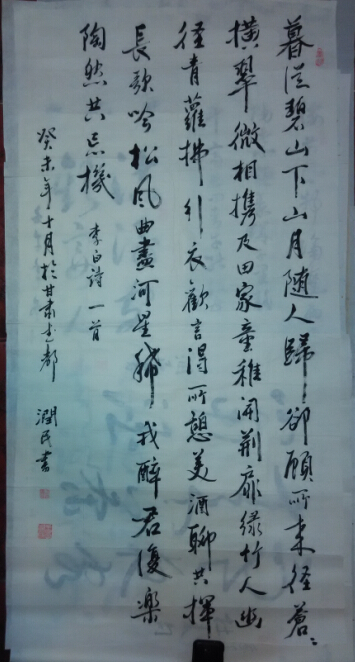 暮從碧山下山月隨人歸卻顧所來徑蒼〻
橫翠微相攜及田家童稚開荊扉綠竹入幽
徑青蘿拂行衣歡言得所憩美酒聊共揮
長歌吟松風曲盡河星稀我醉君復樂
陶然共忘機 李白詩一首
癸未年十月於甘肅武都 潤民書